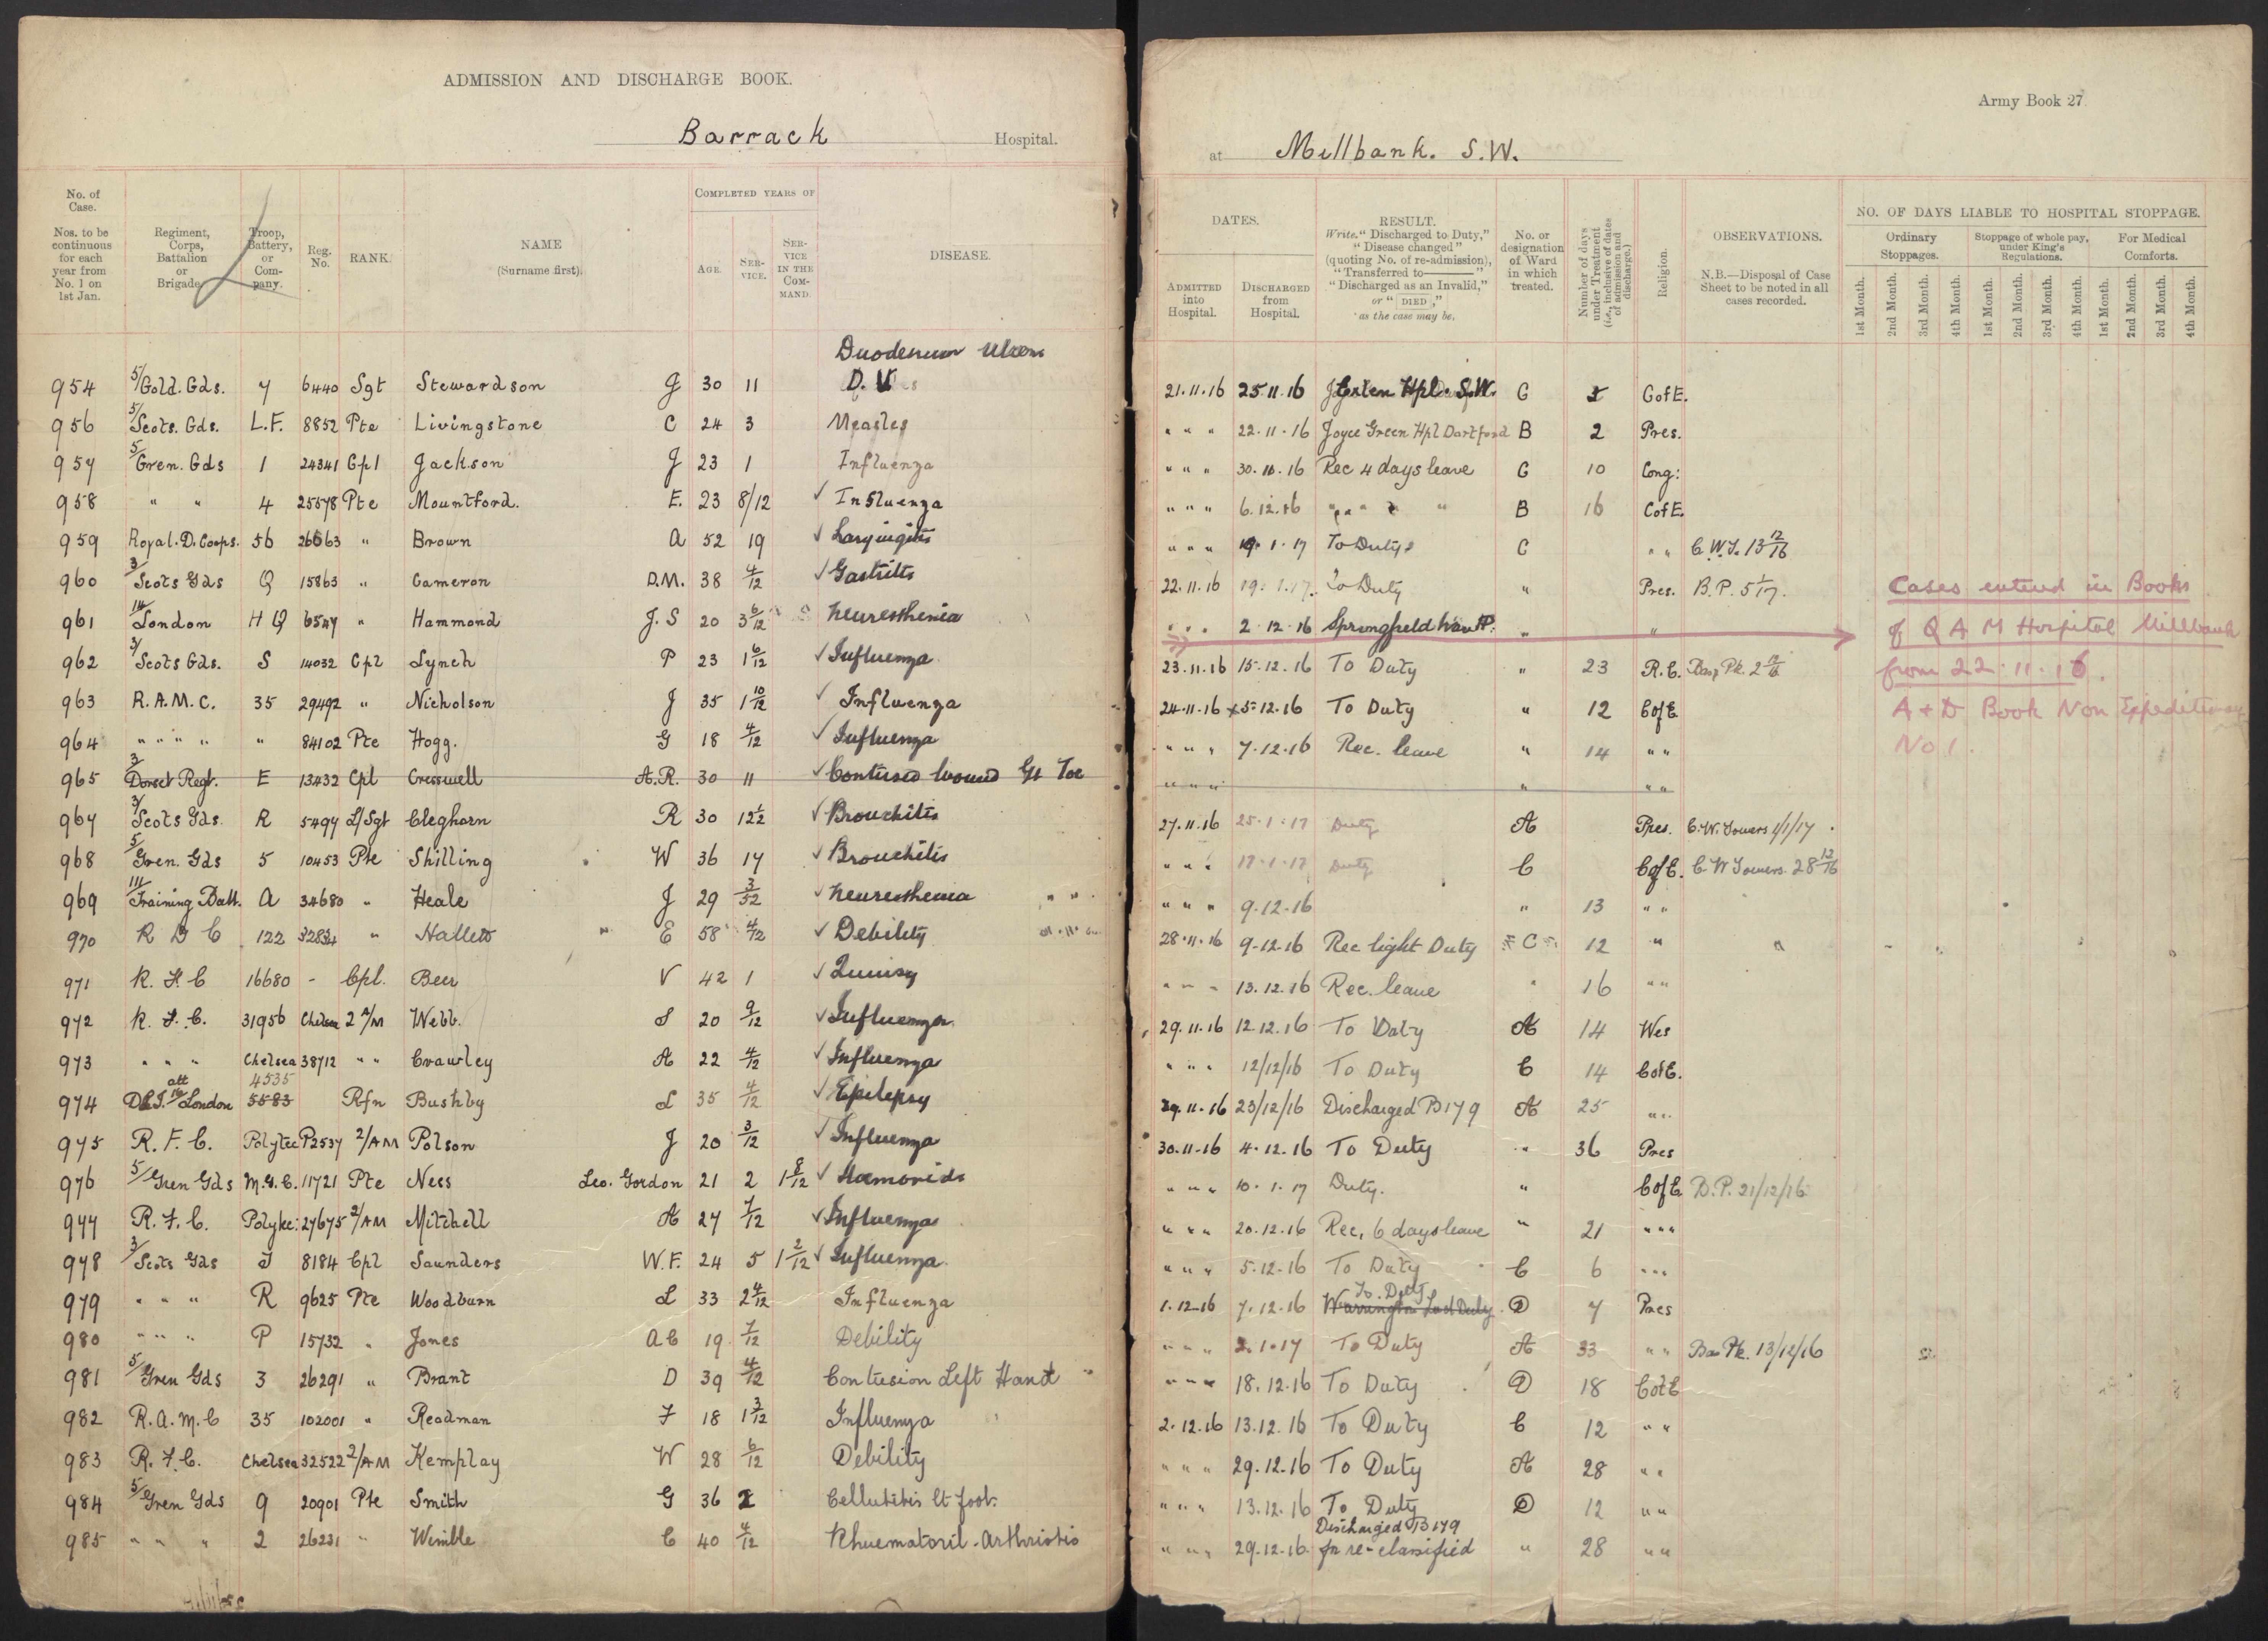 ADMISSION AND DISCHARGE BOOK.
Barrack Hospital.
Army Book 27
at Millbank. S.W.
No. of Case. Nos. to be continuous for each year from No. 1 on 1st Jan.
Regiment, Corps, Battalion or Brigade
Troop, Battery, or Company.
Reg. No.
RANK.
NAME (Surname first).
COMPLETED YEARS OF
AGE.
SERVICE.
SERVICE IN THE COMMAND.
DISEASE.
DATES.
ADMITTED into Hospital.
DISCHARGED from Hospital.
RESULT. Write "Discharged to Duty," "Disease changed" (quoting No. of re-admission), "Transferred to——" "Discharged as an Invalid," or "DIED," as the case may be.
No. or designation of Ward in which treated.
Number of days under Treatment (i.e., inclusive of dates of admission and discharge.)
Religion.
OBSERVATIONS.
N.B.—Disposal of Case Sheet to be noted in all cases recorded.
NO. OF DAYS LIABLE TO HOSPITAL STOPPAGE.
Ordinary Stoppages.
Stoppage of whole pay, under King's Regulations.
For Medical Comforts.
1st Month. 2nd Month. 3rd Month. 4th Month. 1st Month. 2nd Month. 3rd Month. 4th Month. 1st Month. 2nd Month. 3rd Month. 4th Month.
Duodenum Ulcers
954 5/Gold. Gds. 7 6440 Sgt Stewardson J 30 11 D. U 21.11.16 25.11.16 Hpl S.W. C 5 C of E.
956 5/Scots. Gds. L.F. 8852 Pte Livingstone C 24 3 Measles " " " 22.11.16 Joyce Green Hpl Dartford B 2 Pres.
957 5/Gren. Gds 1 24341 Cpl Jackson J 23 1 Influenza " " " 30.11.16 Rec 4 days leave C 10 Cong:
958 " " 4 25578 Pte Mountford. E. 23 8/12 ✓ Influenza " " " 6.12.16 " " " " B 16 C of E.
959 Royal. D. Corps. 56 26663 " Brown A 52 19 ✓ Laryingitis " " " 19.1.17 To Duty C " " C.W.T. 13 12/16
960 3/Scots Gds Q 15863 " Cameron D.M. 38 4/12 ✓ Gastritis 22.11.16 19.1.17. To Duty " Pres. B.P. 5 1/17.
961 14/London H Q 6547 " Hammond J.S 20 3 6/12 Neuresthenia " " " 2.12.16 Springfield War HP. " "
962 3/Scots Gds. S 14032 Cpl Lynch P 23 1 6/12 ✓ Influenza 23.11.16 15.12.16 To Duty " 23 R.C. Bas Pk. 2 12/16
963 R.A.M.C. 35 29492 " Nicholson J 35 1 10/12 ✓ Influenza 24.11.16 x5.12.16 To Duty " 12 C of E
964 " " " " " 84102 Pte Hogg. G 18 4/12 ✓ Influenza " " " 7.12.16 Rec. leave " 14 " "
965 3/Dorset Regt. E 13432 Cpl Cresswell A.R. 30 11 ✓ Contused Wound Gt Toe " " " " " "
967 3/Scots Gds R 5497 L/Sgt Cleghorn R 30 12 1/2 ✓ Bronchitis 27.11.16 25.1.17 Duty A Pres. C.W. Towers 1/1/17.
968 5/Gren. Gds 5 10453 Pte Shilling W 36 17 ✓ Bronchitis " " " 17.1.17 Duty C C of E. C W Towers. 28 12/16
969 111/Training Batt. A 34680 " Heale J 29 3/52 ✓ Neuresthenia " " " 9.12.16 " 13 " "
970 R D C 122 " Hallett E 58 4/12 ✓ Debility 28.11.16 9.12.16 Rec light Duty C 12 "
971 R. F. C 16680 - Cpl. Beer V 42 1 ✓ Quinsy " " " 13.12.16 Rec. leave " 16 " "
972 R. F. C. 31956 Chelsea 2 A/M Webb. S 20 9/12 ✓ Influenza 29.11.16 12.12.16 To Duty A 14 Wes
973 " " " Chelsea 38712 " " Crawley A 22 4/12 ✓ Influenza " " " 12/12/16 To Duty C 14 C of E.
974 att D.L.I. 16 London 4535 5583 Rfn Bushby L 35 4/12 ✓ Epilepsy 29.11.16 23/12/16 Discharged B179 A 25 " "
975 R. F. C. Polytec P2537 2/AM Polson J 20 3/12 ✓ Influenza 30.11.16 4.12.16 To Duty " 36 Pres
976 5/Gren Gds M.G.C. 11721 Pte Ness Leo. Gordon 21 2 1 8/12 ✓ Hæmorids " " " 10.1.17 Duty. " C of E D.P. 21/12/16
977 R. F. C. Polytec: 27675 2/AM Mitchell A 27 7/12 ✓ Influenza " " " 20.12.16 Rec, 6 days leave " 21 " " "
978 3/Scots Gds J 8184 Cpl Saunders W.F. 24 5 1 2/12 ✓ Influenza. " " " 5.12.16 To Duty C 6 " " "
979 " " " R 9625 Pte Woodburn L 33 2 4/12 Influenza 1.12.16 7.12.16 Warrington Last Duty. To. Duty D 7 Pres
980 " " " P 15732 " Jones A C 19 7/12 Debility " " " 2.1.17 To Duty A 33 " " Bas Pk. 13/12/16
981 5/Gren Gds 3 26291 " Brant D 39 4/12 Contusion Left Hand " " " 18.12.16 To Duty D 18 C of E
982 R.A.M.C 35 102001 " Readman F 18 1 3/12 Influenza 2.12.16 13.12.16 To Duty C 12 " "
983 R. F. C. Chelsea 32522 2/AM Kemplay W 28 6/12 Debility " " " 29.12.16 To Duty A 28 " "
984 5/Gren Gds 9 20901 Pte Smith G 36 2 Cellutitis lt foot. " " " 13.12.16 To Duty D 12 " "
985 " " " 2 26231 " Wimble C 40 4/12 Rhuematoril-Arthristis " " " 29.12.16 Discharged B179 for re-classified " 28 " "
Cases entered in Books
of Q A M Hospital Millbank
from 22.11.16.
A & D Book Non Expeditionary
No 1.